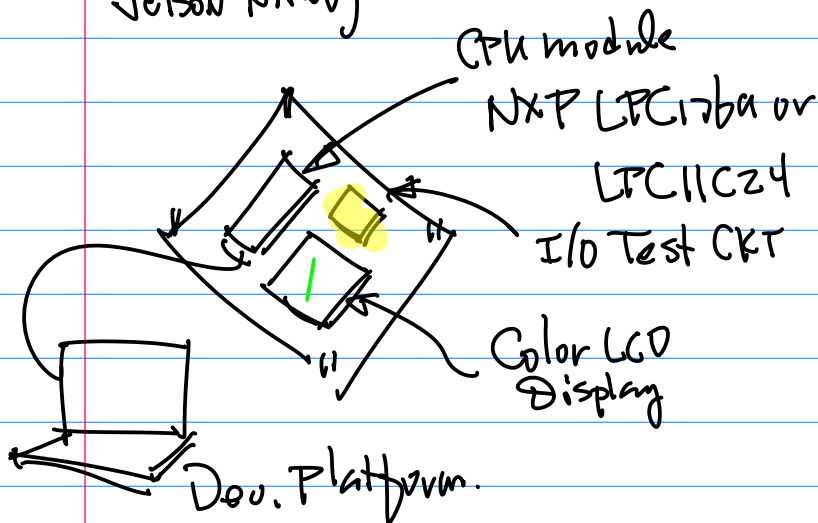 Jetson Nano
CPU module
NXP LPC1769 or
LPC11C24
I/O Test CKT
Color LCD
Display
Dev. Platform.